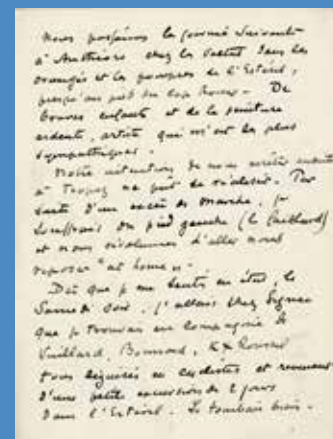 Nous passâmes la journée suivante
à Anthéore chez les Valtat dans les
orangés et les pourpres de l'Estérel,
presqu'au pied du Cap Roux. De
bonnes enfants et de la peinture
ardente, artiste qui m'est des plus
sympathiques.
Notre intention de nous arrêter
à Tropez ne put se réaliser. Par
suite d'un excès de marche, je
souffrais du pied gauche (le gaillard)
et nous résolûmes d'aller nous
reposer "at home".
Dès que je me sentis en état, le
Samedi soir, j'allais chez Signac
que je trouvai en compagnie de
Vuillard, Bonnard, Roussel
tous déguisés en cyclistes et revenant
d'une petite excursion de 2 jours
dans l'Estérel. Je tombais bien.